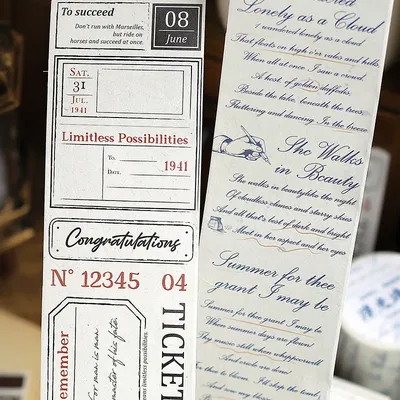 To succeed
Don't run with Marseilles,
but ride on
horses and succeed at once.
08
June
SAT.
31
JUL.
1941
Limitless Possibilities
To.
Date.
1941
Congratulations
N° 12345 04
TICKET
Remember
For man is man
master of his fate.
limitless possibilities.
Lonely as a Cloud
I wandered lonely as a cloud
That floats on high o'er vales and hills,
When all at once I saw a crowd,
A host, of golden daffodils;
Beside the lake, beneath the trees,
Fluttering and dancing in the breeze.
She Walks
in Beauty
She walks in beauty, like the night
Of cloudless climes and starry skies
And all that's best of dark and bright
Meet in her aspect and her eyes
Summer for thee
grant I may be
Summer for thee grant I may be
When summer days are flown!
Thy music still when whippoorwill
And oriole are done!
to bloom, I'll skip the tomb